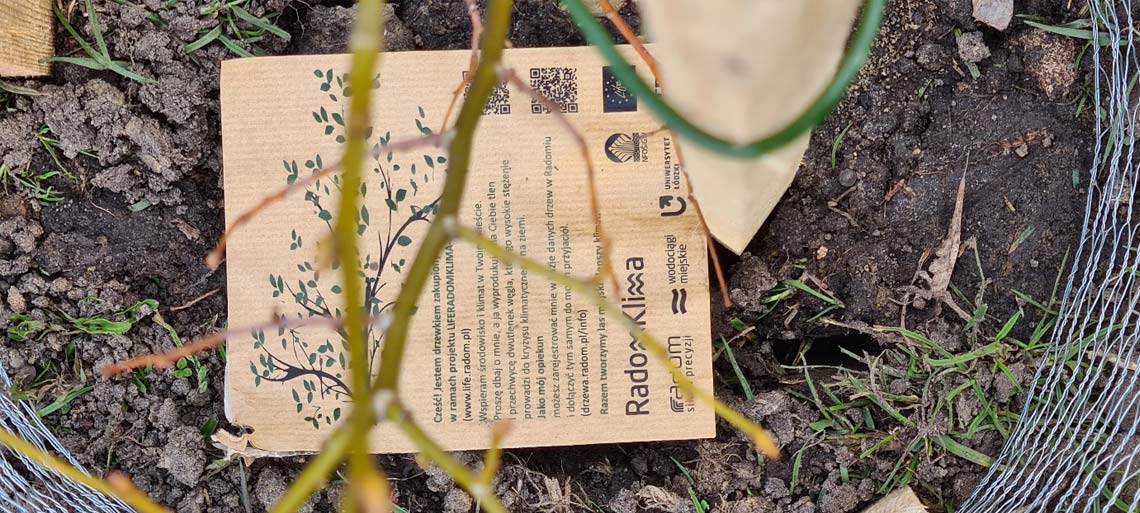 Cześć! Jestem drzewkiem zakupiony
w ramach projektu LIFERADOMKLIMA-
(www.life.radom.pl)
Wspieram środowisko i klimat w Twoim mieście.
Proszę dbaj o mnie, a ja wyprodukuję dla Ciebie tlen
i przechwycę dwutlenek węgla, którego wysokie stężenie
prowadzi do kryzysu klimatycznego na ziemi.
Jako mój opiekun
możesz zarejestrować mnie w bazie danych drzew w Radomiu
i dołączyć tym samym do moich przyjaciół.
(drzewa.radom.pl/info)
Razem tworzymy las miejski lepszy klimat
RadomKlima
siła precyzji
wodociągi
miejskie
UNIWERSYTET
ŁÓDZKI
NFOŚiGW